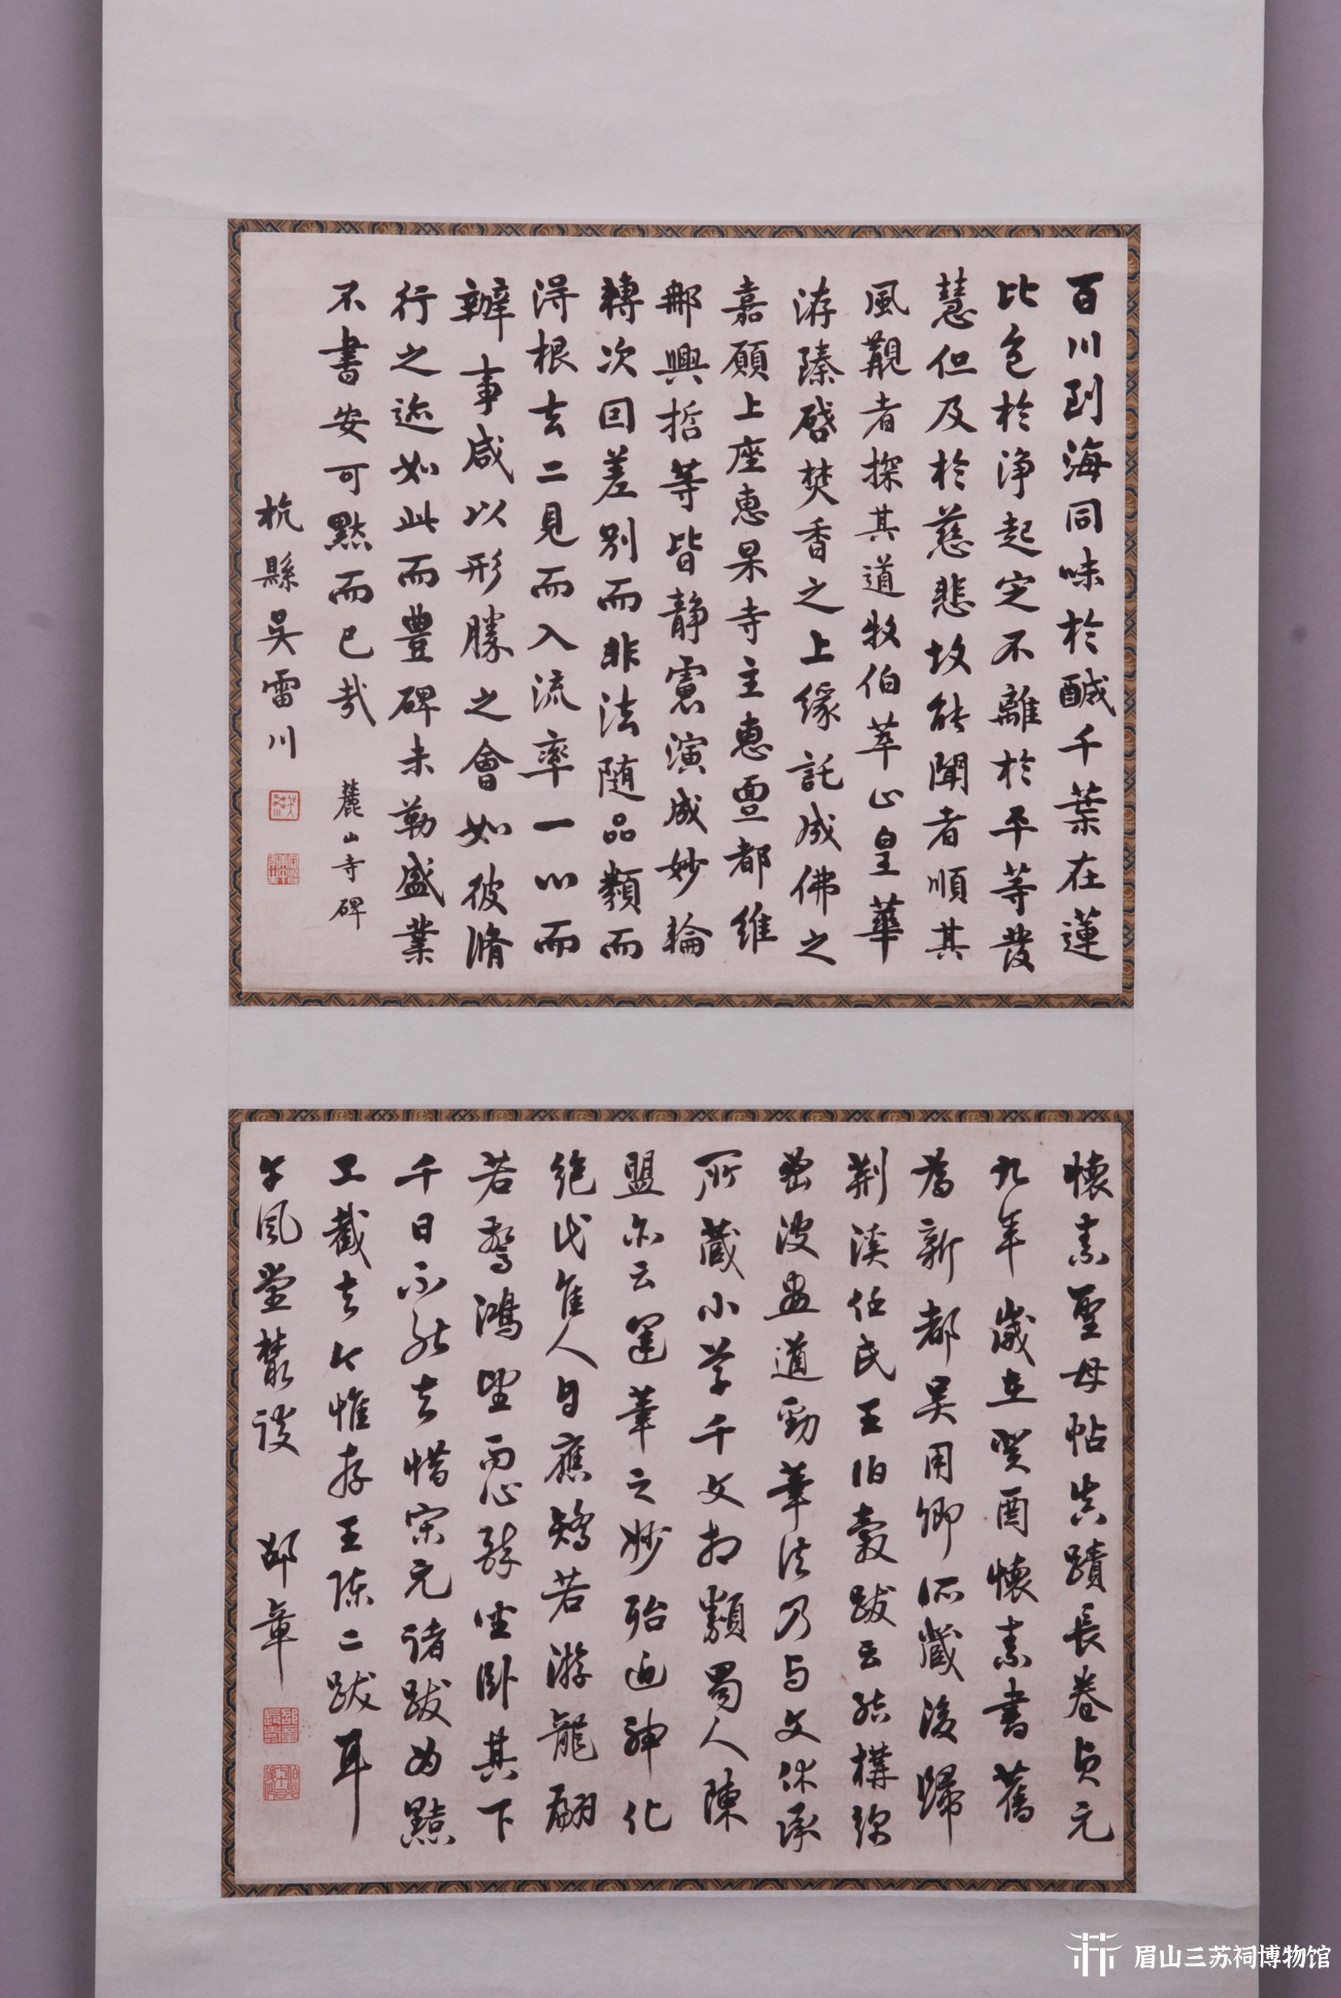 百川到海同味於醎千葉在蓮
比色於淨起定不離於平等發
慧但及於慈悲故能聞者順其
風觀者探其道牧伯萃止皇華
洊臻啓焚香之上緣託成佛之
嘉願上座惠杲寺主惠亶都維
那興哲等皆靜慮演成妙輪
轉次因差別而非法隨品類而
得根去二見而入流率一心而
辦事咸以形勝之會如彼脩
行之迹如此而豐碑未勒盛業
不書安可默而已哉 麓山寺碑
杭縣吳雷川
懷素聖母帖真蹟長卷貞元
九年歲在癸酉懷素書舊
為新都吳用卿所藏後歸
荆溪任氏王伯縠跋云結構
波畫遒勁筆法乃與文休承
所藏小草千文相類蜀人陳
盟亦云運筆之妙殆通神化
絶代佳人自應矯若游龍翩
若驚鴻望而心醉坐卧其下
千日不能去惜宋元諸跋為黠
工截去今惟存王陳二跋耳
午風堂叢談 邵章
眉山三苏祠博物馆